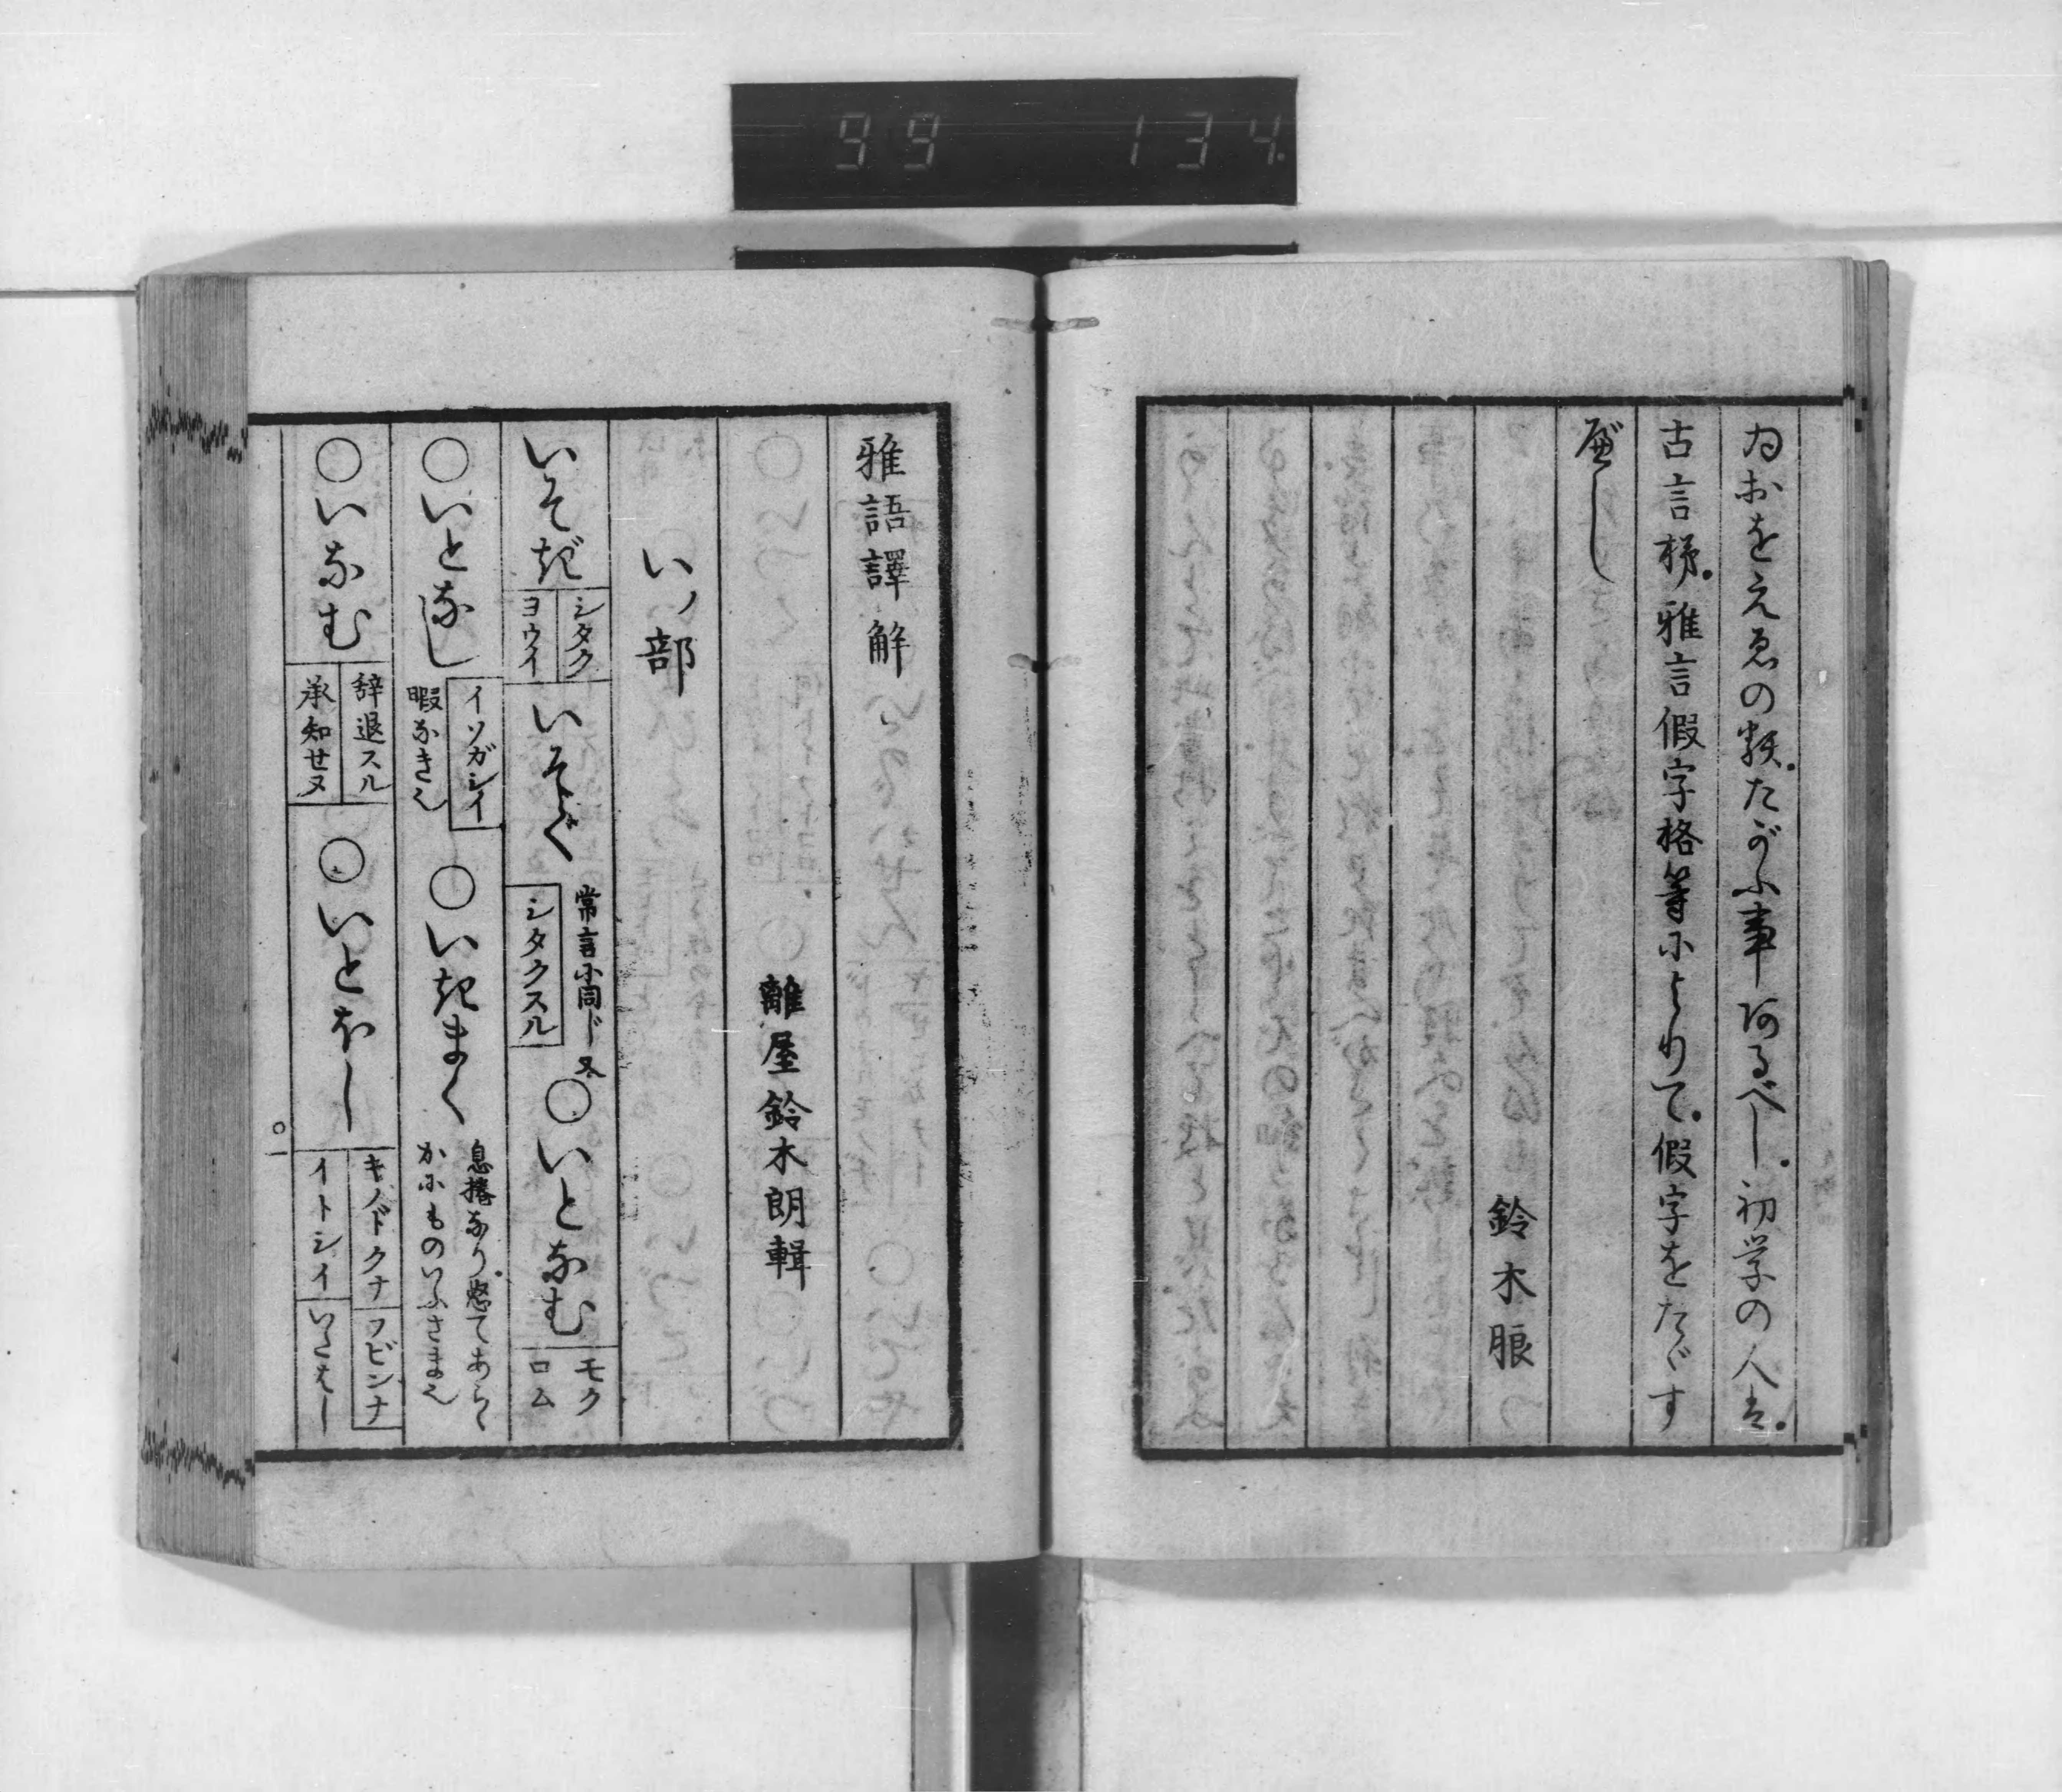 99 134
ゐおをえゑの類。たがふ事あるべし。初学の人は。
古言梯。雅言假字格等によりて。假字をたゞす
べし
鈴木朖
雅語譯解
離屋鈴木朗輯
いノ部
いそぎ シタク ヨウイ いそぐ 常言に同じ 又 シタクスル ○いとなむ モクロム
○いとなし イソガシイ 暇なき也 ○いきまく 息捲なり。怒てあらゝかにものいふさま也
○いなむ 辞退スル 承知せヌ ○いとほし キノドクナ フビンナ イトシイ いたはし
○一